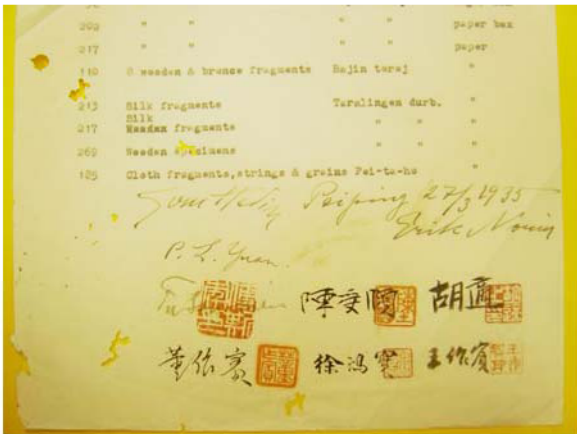 202 " " " " paper box
217 " " " " paper
110 8 wooden & bronce fragments Bajin toraj "
213 Silk fragments Taralingen durb. "
Silk
217 Wooden fragments " " "
269 Wooden specimens " " "
125 Cloth fragments, strings & grains Pei-ta-ho "
Peiping 27/3 1935
Erik Norin
P. L. Yuan.
陳受頤 胡適
董作賓 徐鴻寶 王作賓